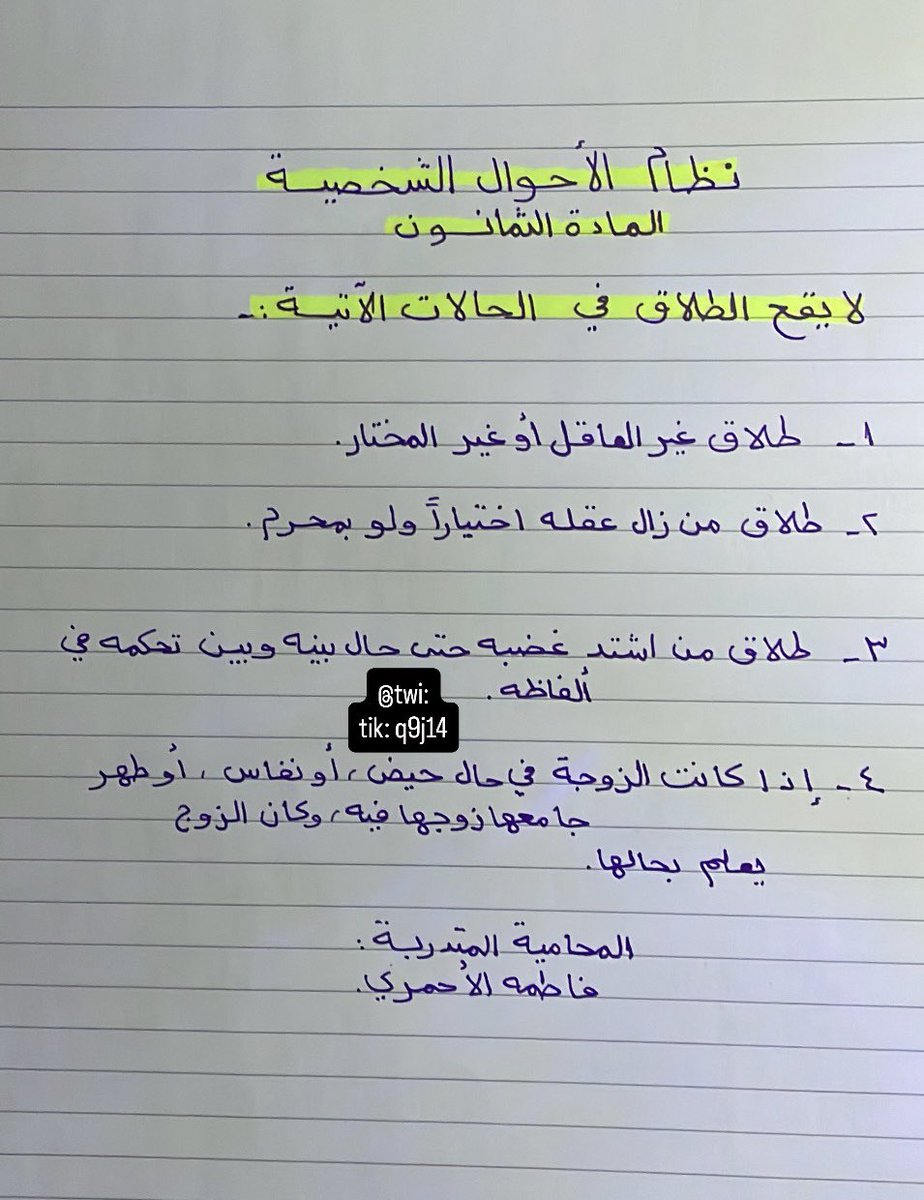 نظام الأحوال الشخصية
المادة الثمانون
لا يقع الطلاق في الحالات الآتية :-
١- طلاق غير العاقل أو غير المختار.
٢- طلاق من زال عقله اختياراً ولو بمحرم.
٣- طلاق من اشتد غضبه حتى حال بينه وبين تحكمه في
ألفاظه.
@twi:
tik: q9j14
٤- إذا كانت الزوجة في حال حيض، أو نفاس، أو طهر
جامعها زوجها فيه، وكان الزوج
يعلم بحالها.
المحامية المتدربة :
فاطمه الأحمري.